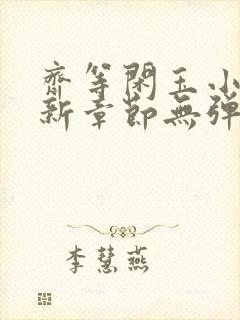 齋等閑玉小
新章節無弹
李慧燕